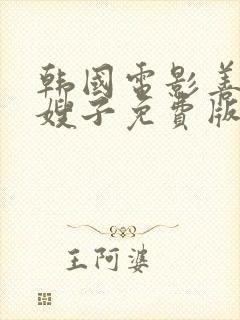 韩國電影善
嫂子免費版
王阿婆